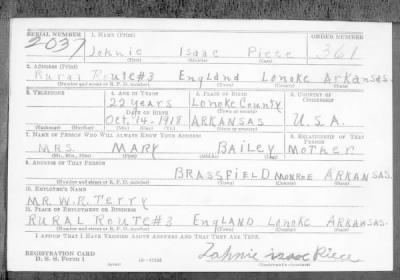 SERIAL NUMBER 1. NAME (Print) ORDER NUMBER
2037 Johnie Isaac Piece 361
(First) (Middle) (Last)
2. ADDRESS (Print)
Rural Route#3 England Lonoke Arkansas.
(Number and street or R. F. D. number) (Town) (County) (State)
3. TELEPHONE 4. AGE IN YEARS 5. PLACE OF BIRTH 6. COUNTRY OF CITIZENSHIP
22 years Lonoke County
DATE OF BIRTH (Town or county)
Oct. 14-1918 ARKANSAS U.S.A.
(Exchange) (Number) (Mo.) (Day) (Yr.) (State or country)
7. NAME OF PERSON WHO WILL ALWAYS KNOW YOUR ADDRESS 8. RELATIONSHIP OF THAT PERSON
MRS. MARY BAILEY MOTHER
(Mr., Mrs., Miss) (First) (Middle) (Last)
9. ADDRESS OF THAT PERSON
BRASSFIELD MONROE ARKANSAS.
(Number and street or R. F. D. number) (Town) (County) (State)
10. EMPLOYER'S NAME
MR. W.R. TERRY
11. PLACE OF EMPLOYMENT OR BUSINESS
RURAL ROUTE#3 ENGLAND LONOKE ARKANSAS.
(Number and street or R. F. D. number) (Town) (County) (State)
I AFFIRM THAT I HAVE VERIFIED ABOVE ANSWERS AND THAT THEY ARE TRUE.
REGISTRATION CARD
D. S. S. Form 1 Johnie isaac Piece
(Registrant's signature)